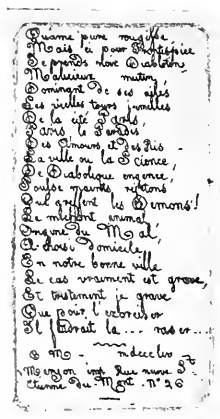 Qu'âme pure rougisse
Mais ci pour Frontispice
Je prends noir Diableton
Malicieux mutin,
Dominant de ses ailes
Les vieilles tours jumelles
De la cité Paris,
Paris, le Paradis
Des Amours et des Ris
La ville où la Science,
De Diabolique engence,
Poulse maints rejetons
Qui greffent les Démons!
Le méchant animal
Origine du Mal,
A choisi domicile
En notre bonne ville
Le cas vraiment est grave,
Et tristement je grave
Que pour l'exorciser
Il faudrait la... raser...
C M - mdccclıv
Meryon imp. Rue neuve St
Etienne du Mont. N° 26